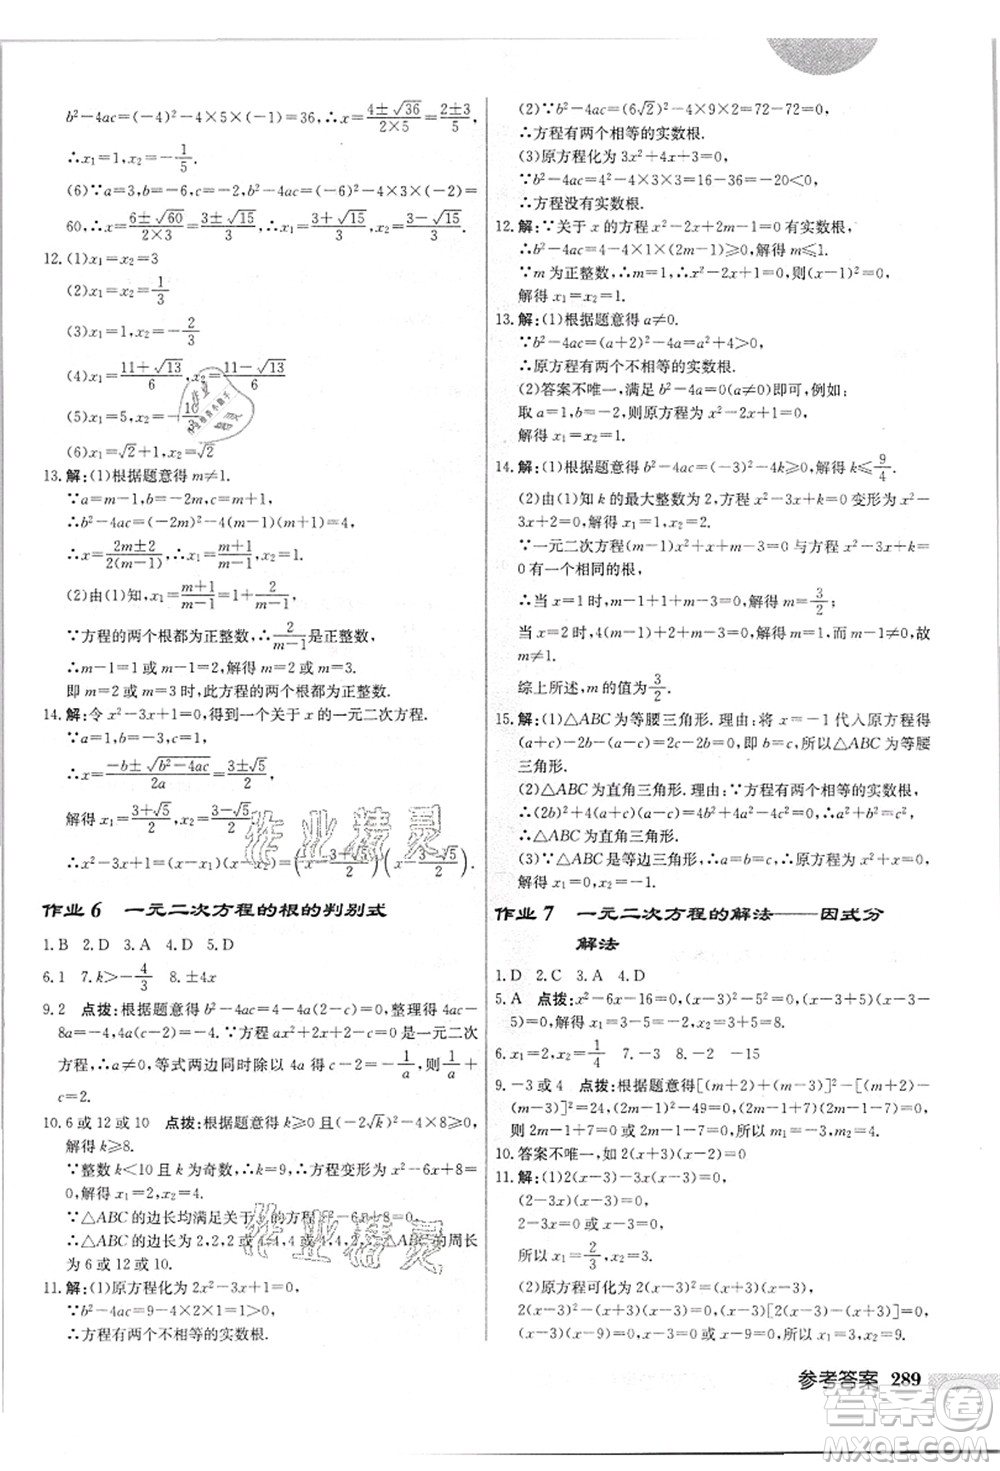 b²-4ac=(-4)²-4×5×(-1)=36,∴x=(4±√36)/(2×5)=(2±3)/5,
∴x₁=1,x₂=-1/5.
(6)∵a=3,b=-6,c=-2,b²-4ac=(-6)²-4×3×(-2)=
60,∴x=(6±√60)/(2×3)=(3±√15)/3,∴x₁=(3+√15)/3,x₂=(3-√15)/3.
12.(1)x₁=x₂=3
(2)x₁=x₂=-1/3
(3)x₁=1,x₂=-2/3
(4)x₁=(11+√13)/6,x₂=(11-√13)/6
(5)x₁=5,x₂=-10/3
(6)x₁=√2+1,x₂=√2
13.解:(1)根据题意得 m≠1.
∵a=m-1,b=-2m,c=m+1,
∴b²-4ac=(-2m)²-4(m-1)(m+1)=4,
∴x=(2m±2)/(2(m-1)),∴x₁=(m+1)/(m-1),x₂=1.
(2)由(1)知,x₁=(m+1)/(m-1)=1+2/(m-1),
∵方程的两个根都为正整数,∴2/(m-1)是正整数,
∴m-1=1或m-1=2,解得m=2或m=3.
即m=2或m=3时,此方程的两个根都为正整数.
14.解:令x²-3x+1=0,得到一个关于x的一元二次方程.
∵a=1,b=-3,c=1,
∴x=(-b±√(b²-4ac))/2a=(3±√5)/2,
解得x₁=(3+√5)/2,x₂=(3-√5)/2.
∴x²-3x+1=(x-x₁)(x-x₂)=(x-(3+√5)/2)(x-(3-√5)/2).
作业 6 一元二次方程的根的判别式
1.B 2.D 3.A 4.D 5.D
6.1 7.k>-4/3 8.±4x
9.2 点拨:根据题意得b²-4ac=4-4a(2-c)=0,整理得4ac-
8a=-4,4a(c-2)=-4.∵方程ax²+2x+2-c=0是一元二次
方程,∴a≠0,等式两边同时除以4a得c-2=-1/a,则1/a+
c=2.
10.6或12或10 点拨:根据题意得k≥0且(-2√k)²-4×8≥0,
解得k≥8.
∵整数k<10且k为奇数,∴k=9,∴方程变形为x²-6x+8=
0,解得x₁=2,x₂=4.
∵△ABC的边长均满足关于x的方程x²-6x+8=0,
∴△ABC的边长为2,2,2或4,4,4或4,4,2,∴△ABC的周长
为6或12或10.
11.解:(1)原方程化为2x²-3x+1=0,
∵b²-4ac=9-4×2×1=1>0,
∴方程有两个不相等的实数根.
(2)∵b²-4ac=(6√2)²-4×9×2=72-72=0,
∴方程有两个相等的实数根.
(3)原方程化为3x²+4x+3=0,
∵b²-4ac=4²-4×3×3=16-36=-20<0,
∴方程没有实数根.
12.解:∵关于x的方程x²-2x+2m-1=0有实数根,
∴b²-4ac=4-4×1×(2m-1)≥0,解得m≤1.
∵m为正整数,∴m=1,∴x²-2x+1=0,则(x-1)²=0,
解得x₁=x₂=1.
13.解:(1)根据题意得a≠0.
∵b²-4ac=(a+2)²-4a=a²+4>0,
∴原方程有两个不相等的实数根.
(2)答案不唯一,如b²-4a=0(a≠0)即可,例如:
取a=1,b=2,则原方程为x²+2x+1=0,
解得x₁=x₂=-1.
14.解:(1)根据题意得b²-4ac=(-3)²-4k≥0,解得k≤9/4.
(2)由(1)知k的最大整数为2,方程x²-3x+k=0变形为x²-
3x+2=0,解得x₁=1,x₂=2.
∵一元二次方程(m-1)x²+x+m-3=0与方程x²-3x+k=
0有一个相同的根,
∴当x=1时,m-1+1+m-3=0,解得m=3/2;
当x=2时,4(m-1)+2+m-3=0,解得m=1,不合题意,故
m≠1.
综上所述,m的值为3/2.
15.解:(1)△ABC为等腰三角形.理由:将x=-1代入原方程得
(a+c)-2b+(a-c)=0,即b=c,所以△ABC为等腰
三角形.
(2)△ABC为直角三角形.理由:∵方程有两个相等的实数根,
∴(2b)²-4(a+c)(a-c)=0,∴b²+c²=a²,
∴△ABC为直角三角形.
(3)∵△ABC是等边三角形,∴a=b=c,∴原方程为x²+x=0,
解得x₁=0,x₂=-1.
作业 7 一元二次方程的解法——因式分
解法
1.D 2.C 3.A 4.D
5.A 点拨:x²-6x-16=0,(x-3)²-25=0,(x-3+5)(x-3-
5)=0,解得x₁=3-5=-2,x₂=3+5=8.
6.x₁=2,x₂=1/4 7.-3 8.-2 -15
9.-3或4 点拨:根据题意得[(m+2)+(m-3)]²-[(m+2)-
(m-3)]²=24,整理得(2m-1)²=49,即2m-1=±7,
则2m-1=7或2m-1=-7,所以m₁=-3,m₂=4.
10.答案不唯一,如2(x+3)(x-2)=0
11.解:(1)2(x-3)-3x(x-3)=0,
(2-3x)(x-3)=0,
2-3x=0或x-3=0,
所以x₁=2/3,x₂=3.
(2)原方程可化为2(x-3)²=(x+3)(x-3),
2(x-3)²-(x+3)(x-3)=0,(x-3)[2(x-3)-(x+3)]=0,
(x-3)(x-9)=0,x-3=0或x-9=0,所以x₁=3,x₂=9.
参考答案 289
答案圈
MXQE.COM